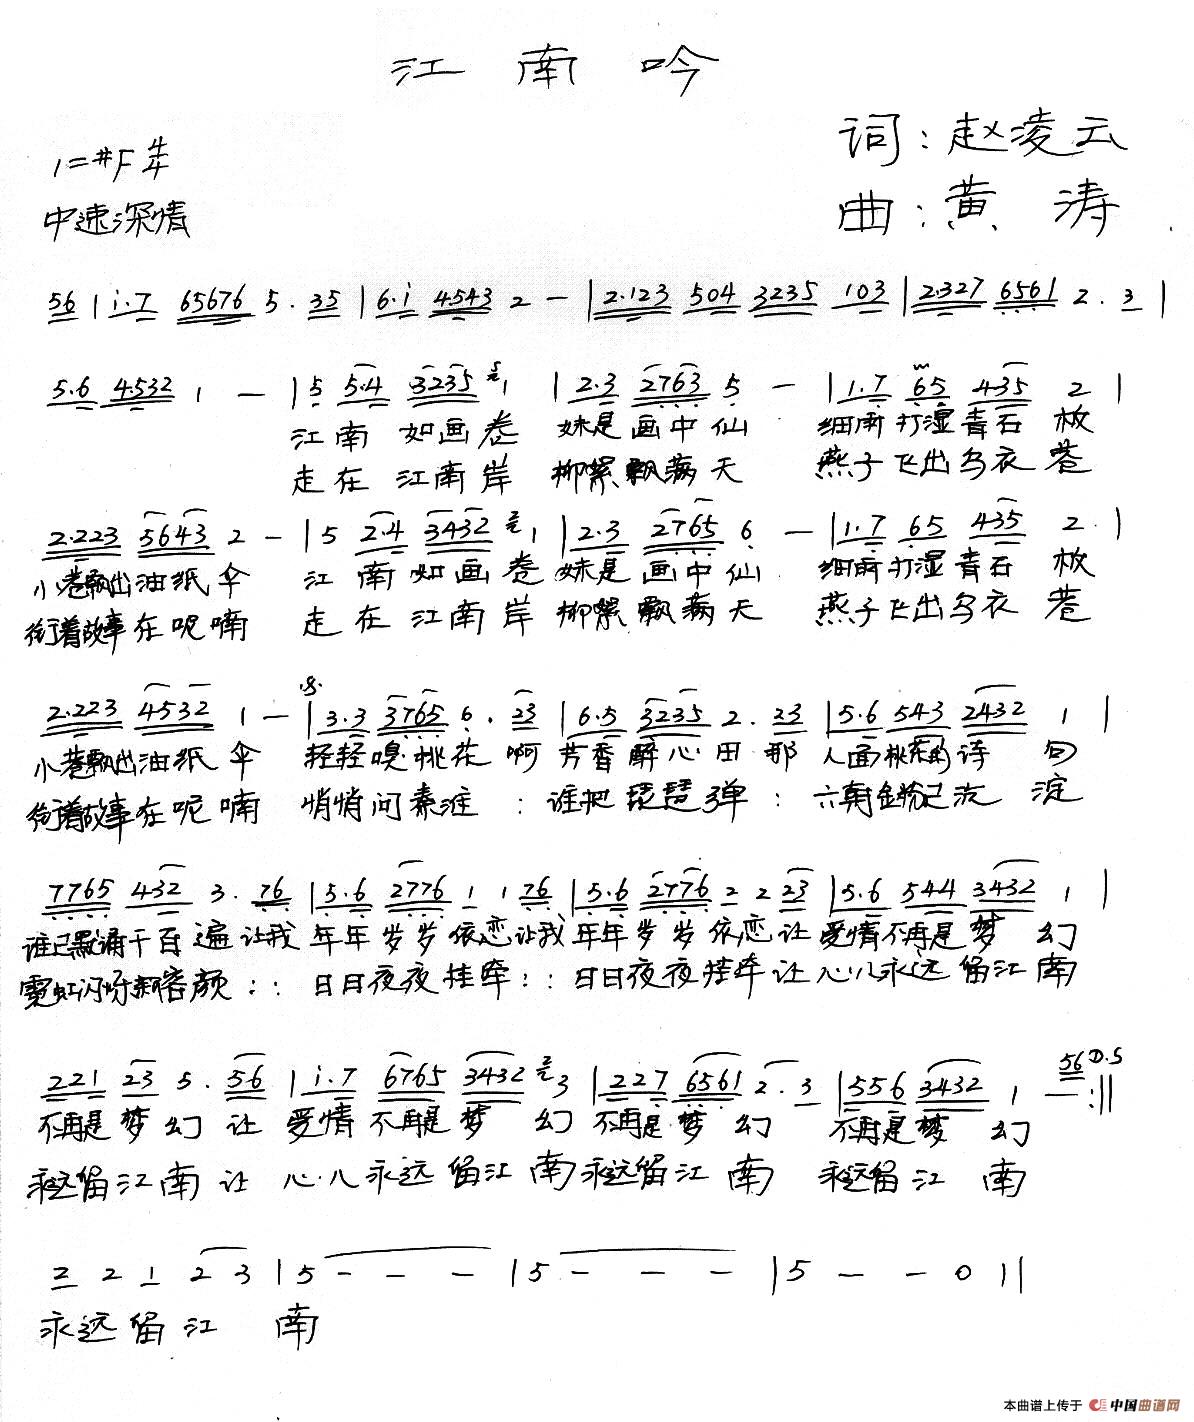 江南吟
词：赵凌云
1=#F 4/4
曲：黄涛
中速深情
56 | i·7 65676 5·35 | 6·i 4543 2 — | 2·123 504 3235 103 | 2·327 6561 2·3 |
5·6 4532 1 — | 5 5·4 3235 5 1 | 2·3 2763 5 — | 1·7 65 435 2 |
江南 如画卷 妹是画中仙 细雨打湿青石板
走在 江南岸 柳絮飘满天 燕子飞出乌衣巷
2·223 5643 2 — | 5 2·4 3432 2 1 | 2·3 2765 6 — | 1·7 65 435 2· |
小巷飘出油纸伞 江南如画卷 妹是画中仙 细雨打湿青石板
衔着故事在呢喃 走在江南岸 柳絮飘满天 燕子飞出乌衣巷
2·223 4532 1 — | 3·3 3765 6·23 | 6·5 3235 2·33 | 5·6 543 2432 1 |
小巷飘出油纸伞 轻轻嗅桃花啊 芳香醉心田那 人面桃花的诗句
衔着故事在呢喃 悄悄问秦淮： 谁把琵琶弹： 六朝金粉已沉淀
7765 432 3·76 | 5·6 2776 1 1 76 | 5·6 2776 2 2 23 | 5·6 544 3432 1 |
谁已默诵千百遍让我 年年岁岁依恋让我 年年岁岁依恋让 爱情不再是梦幻
霓虹闪烁新容颜：： 日日夜夜挂牵：： 日日夜夜挂牵让 心儿永远留江南
221 23 5·56 | i·7 6765 3432 2 3 | 227 6561 2·3 | 556 3432 1 — 56 D.S :||
不再是梦幻让 爱情不再是梦幻 不再是梦幻 不再是梦幻
永远留江南让 心儿永远留江南 永远留江南 永远留江南
2 2 1 2 3 | 5 — — — | 5 — — — | 5 — — 0 ||
永远留江南
本曲谱上传于 中国曲谱网